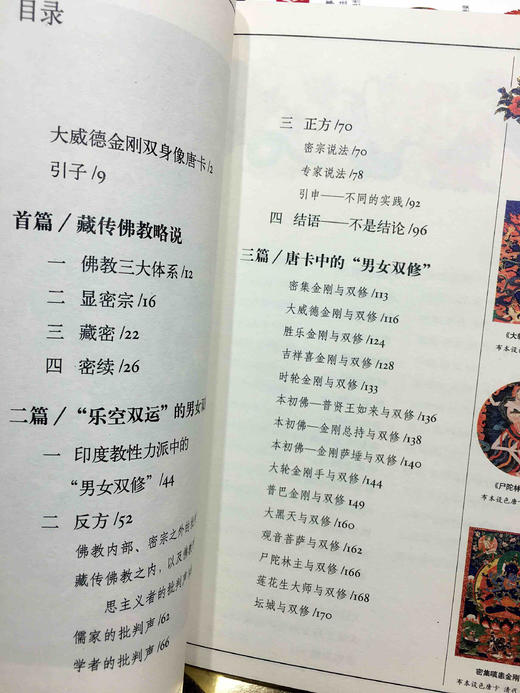 目录
大威德金刚双身像唐卡/2
引子/9
首篇/藏传佛教略说
一 佛教三大体系/12
二 显密宗/16
三 藏密/22
四 密续/26
二篇/“乐空双运”的男女
一 印度教性力派中的
“男女双修”/44
二 反方/52
佛教内部、密宗之外的
藏传佛教之内，以及佛
思主义者的批判声
儒家的批判声/62
学者的批判声/66
三 正方/70
密宗说法/70
专家说法/78
引申——不同的实践/92
四 结语——不是结论/96
三篇/唐卡中的“男女双修”
密集金刚与双修/113
大威德金刚与双修/116
胜乐金刚与双修/124
吉祥喜金刚与双修/128
时轮金刚与双修/133
本初佛—普贤王如来与双修/136
本初佛—金刚总持与双修/138
本初佛—金刚萨埵与双修/140
大轮金刚手与双修/144
普巴金刚与双修/149
大黑天与双修/160
观音菩萨与双修/162
尸陀林主与双修/166
莲花生大师与双修/168
坛城与双修/170
《大
布本设色
《尸陀林
布本设色唐
密集嗔恚金刚
布本设色唐卡 清